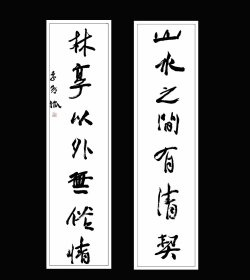 山水之間有清契
林亭以外無俗情